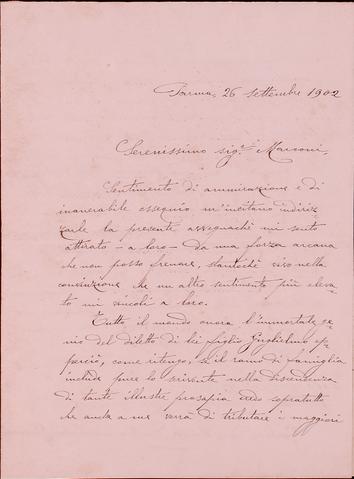 Parma, 26 settembre 1902
Serenissimo sig.r Marconi,
Sentimento di ammirazione e di
inenarrabile ossequio m'incitano indiriz-
zarle la presente mi sento
attirato - a loro - da una forza arcana
che non posso frenare, stantechè vivo nella
convinzione che un altro sentimento più eleva-
to mi vincoli a loro.
Tutto il mondo onora l'immortale ge-
nio del diletto di lei figlio Guglielmo ep-
perciò, come ritengo, se il ramo di famiglia
include pure lo scrivente nella discendenza
di tante illustre prosapia credo sopratutto
che anche a me verrà di tributare i maggiori